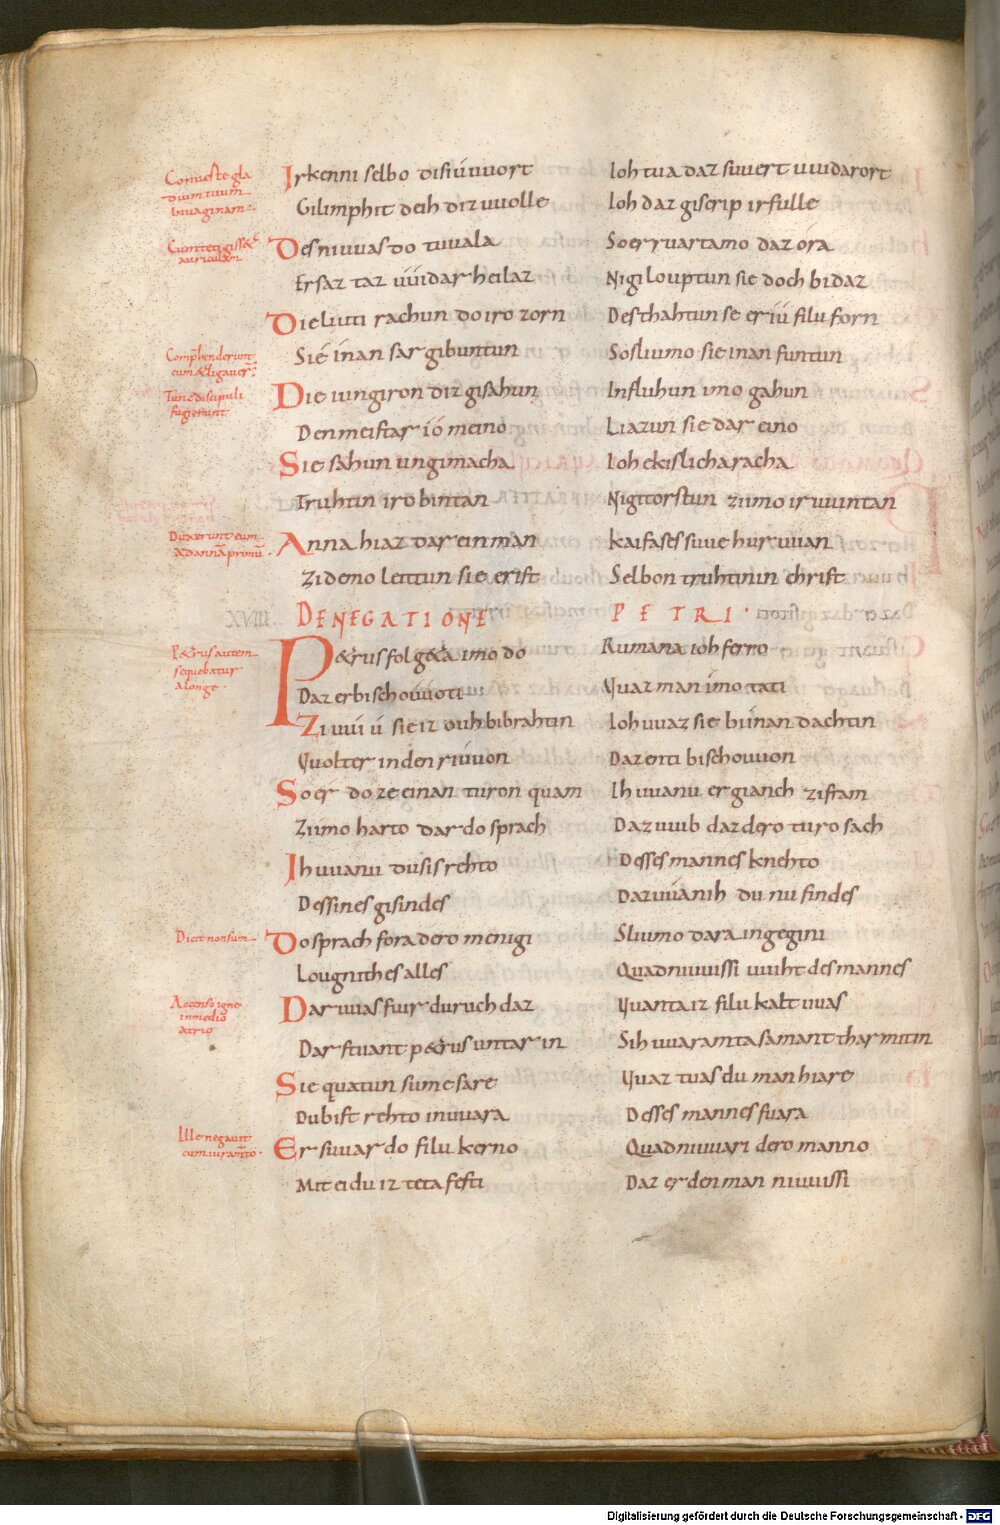 Conuerte gla
dium tuum
in uaginam.
Irkenni selbo disiu uuort Ioh tua daz suuert uuidarort
Gilimphit deih diz uuolle Ioh daz giscrip irfulle
Cum tetigisset
auriculam
Des niuuas do tuuala So er ruarta mo daz ora
Er saz taz uuidar heilaz Ni gilouptun sie doch bi daz
Die liuti rachun do iro zorn Des thahtun se er iu filu forn
Comprehenderunt
eum & ligauer
Sie inan sar gibuntun So sliumo sie inan funtun
Tunc discipuli
fugierunt
Die iungiron diz gisahun In fluhun imo gahun
Den meistar io meino Liazun sie dar eino
Sie sahun ungimacha Ioh ekislicha racha
Truhtin iro bintan Ni gitorstun zi imo iruuintan
Duxerunt eum
ad annā primū.
Anna hiaz dar ein man Kaifases suuehur uuan
Zi demo leittun sie erist Selbon truhtinin christ
XVIII DENEGATIONE PETRI.
P&rus autem
sequebatur
a longe.
P&rus folg&a imo do Rumana ioh ferro
Daz er biscouuoti Quaz man imo tati
Zi uuiu sie iz ouh bibrahtin Ioh uuaz sie bi inan dachtin
Quolter in den riuuon Daz enti bischouuon
So er do ze einan turon quam Ih uuanu er gianch zi fram
Zi imo harto dar do sprach Daz uuib daz dero turo sach
Ih uuanu du sis rehto Desses mannes knehto
Des sines gisindes Daz uuan ih du nu findes
Dicit non sum
Do sprach fora dero menigi Sliumo dara ingegini
Lougnit hes alles Quad ni uuissi uuiht des mannes
Accenso igne
in medio
atrio
Dar uuas fuir duruch daz Quanta iz filu kalt uuas
Dar stuant p&rus untar in Sih uuaramta samant thar mit in
Sie quatun sume sare Quaz tuas du man hiare
Du bist rehto in uuara Desses mannes fuara
Ille negauit
cum iuramto.
Er suuar do filu kerno Quad ni uuari dero manno
Mit eidu iz teta festi Daz er den man ni uuissi
Digitalisierung gefördert durch die Deutsche Forschungsgemeinschaft - DFG